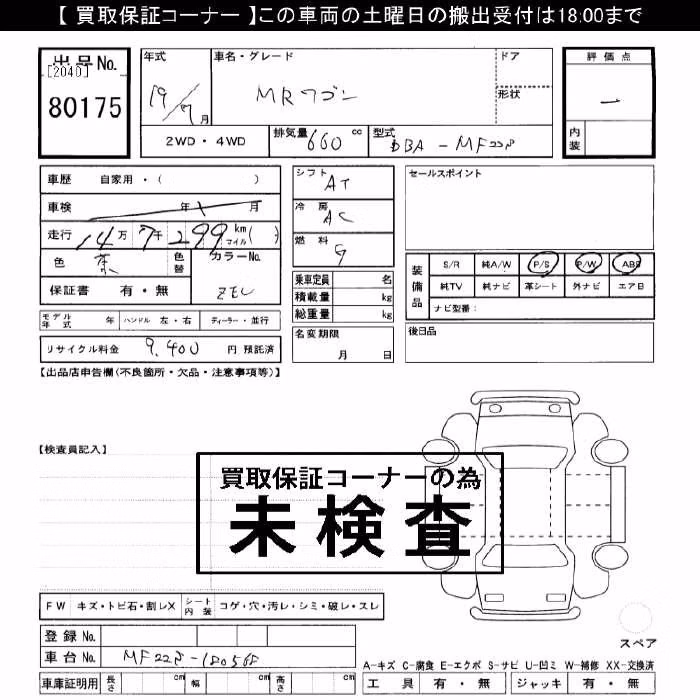 【 買取保証コーナー 】この車両の土曜日の搬出受付は18:00まで
出品No.
[2040]
80175
年式
19/7月
車名・グレード
MRワゴン
ドア
形状
評価点
ー
内装
2WD・4WD
排気量 660 cc
型式 DBA-MF22S
車歴 自家用・( )
車検 年 月
走行 14万7千299 km マイル( )
色 茶
色替
カラーNo. ZEU
保証書 有・無
シフト AT
冷房 AC
燃料 G
乗車定員 名
積載量 kg
総重量 kg
セールスポイント
装備品
S/R 純A/W P/S P/W ABS
純TV 純ナビ 革シート 外ナビ エアB
ナビ型番：
モデル年式 年 ハンドル 左・右 ディーラー・並行
リサイクル料金 9,400 円 預託済
名変期限
月 日
後日品
【出品店申告欄(不良箇所・欠品・注意事項等)】
【検査員記入】
買取保証コーナーの為
未検査
FW キズ・トビ石・割レX シート内装 コゲ・穴・汚レ・シミ・破レ・スレ
登録 No.
車台 No. MF22S-180568
車庫証明用 長さ cm 幅 cm 高さ cm
スペア
A-キズ C-腐食 E-エクボ S-サビ U-凹ミ W-補修 XX-交換済
工具 有・無 ジャッキ 有・無